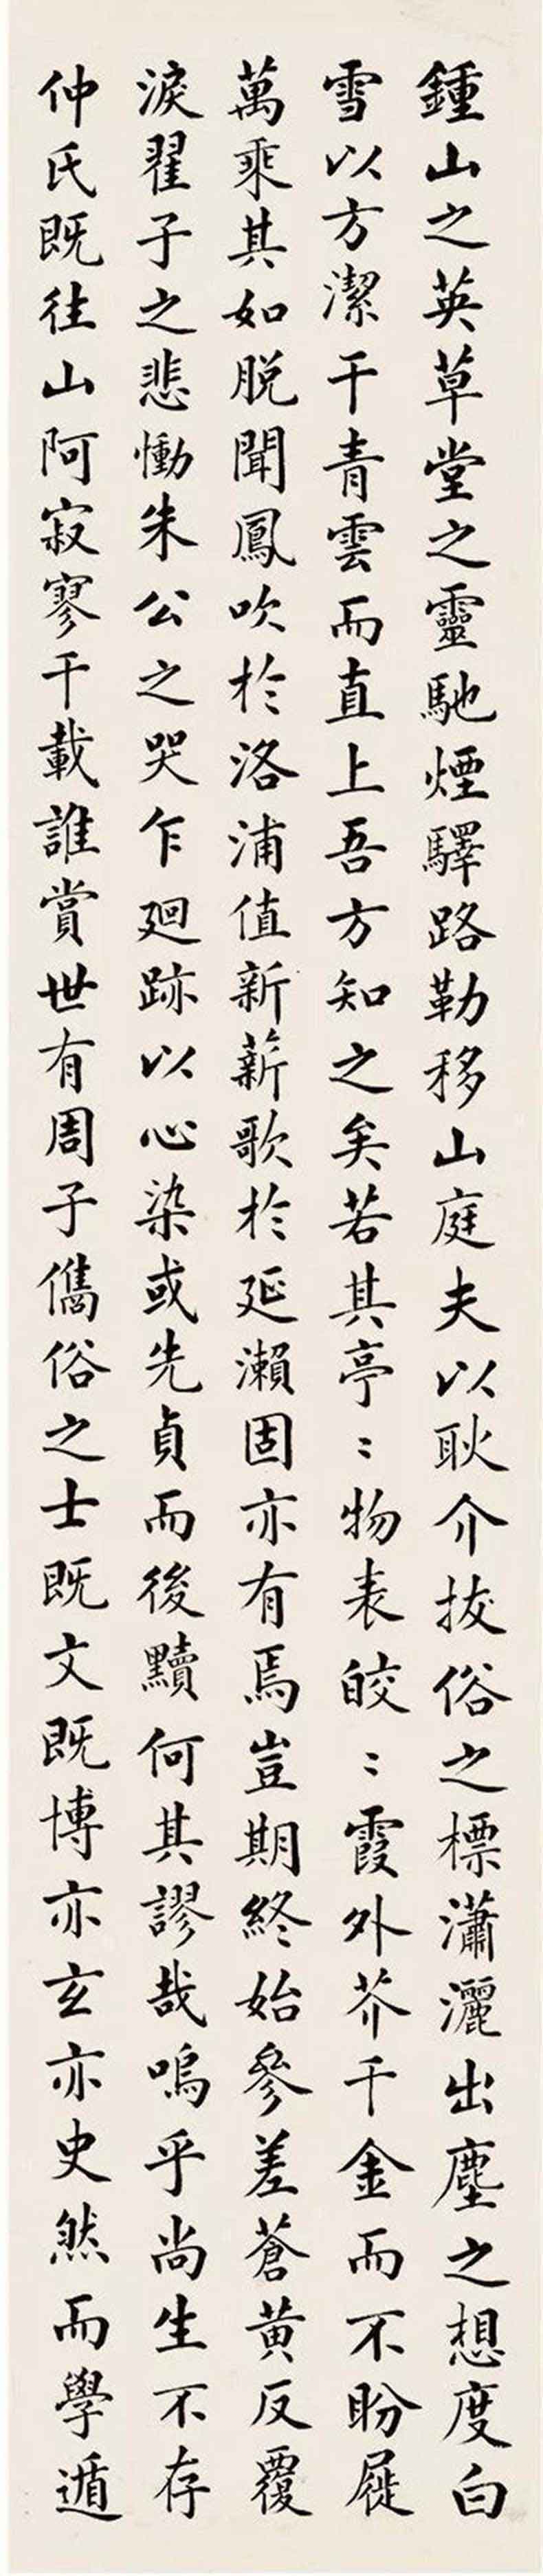 鍾山之英草堂之靈馳煙驛路勒移山庭夫以耿介拔俗之標瀟灑出塵之想度白
雪以方潔干青雲而直上吾方知之矣若其亭〻物表皎〻霞外芥千金而不盼屣
萬乘其如脫聞鳳吹於洛浦值新薪歌於延瀨固亦有焉豈期終始參差蒼黃反覆
淚翟子之悲慟朱公之哭乍廻跡以心染或先貞而後黷何其謬哉嗚乎尚生不存
仲氏既往山阿寂寥千載誰賞世有周子儁俗之士既文既博亦玄亦史然而學遁